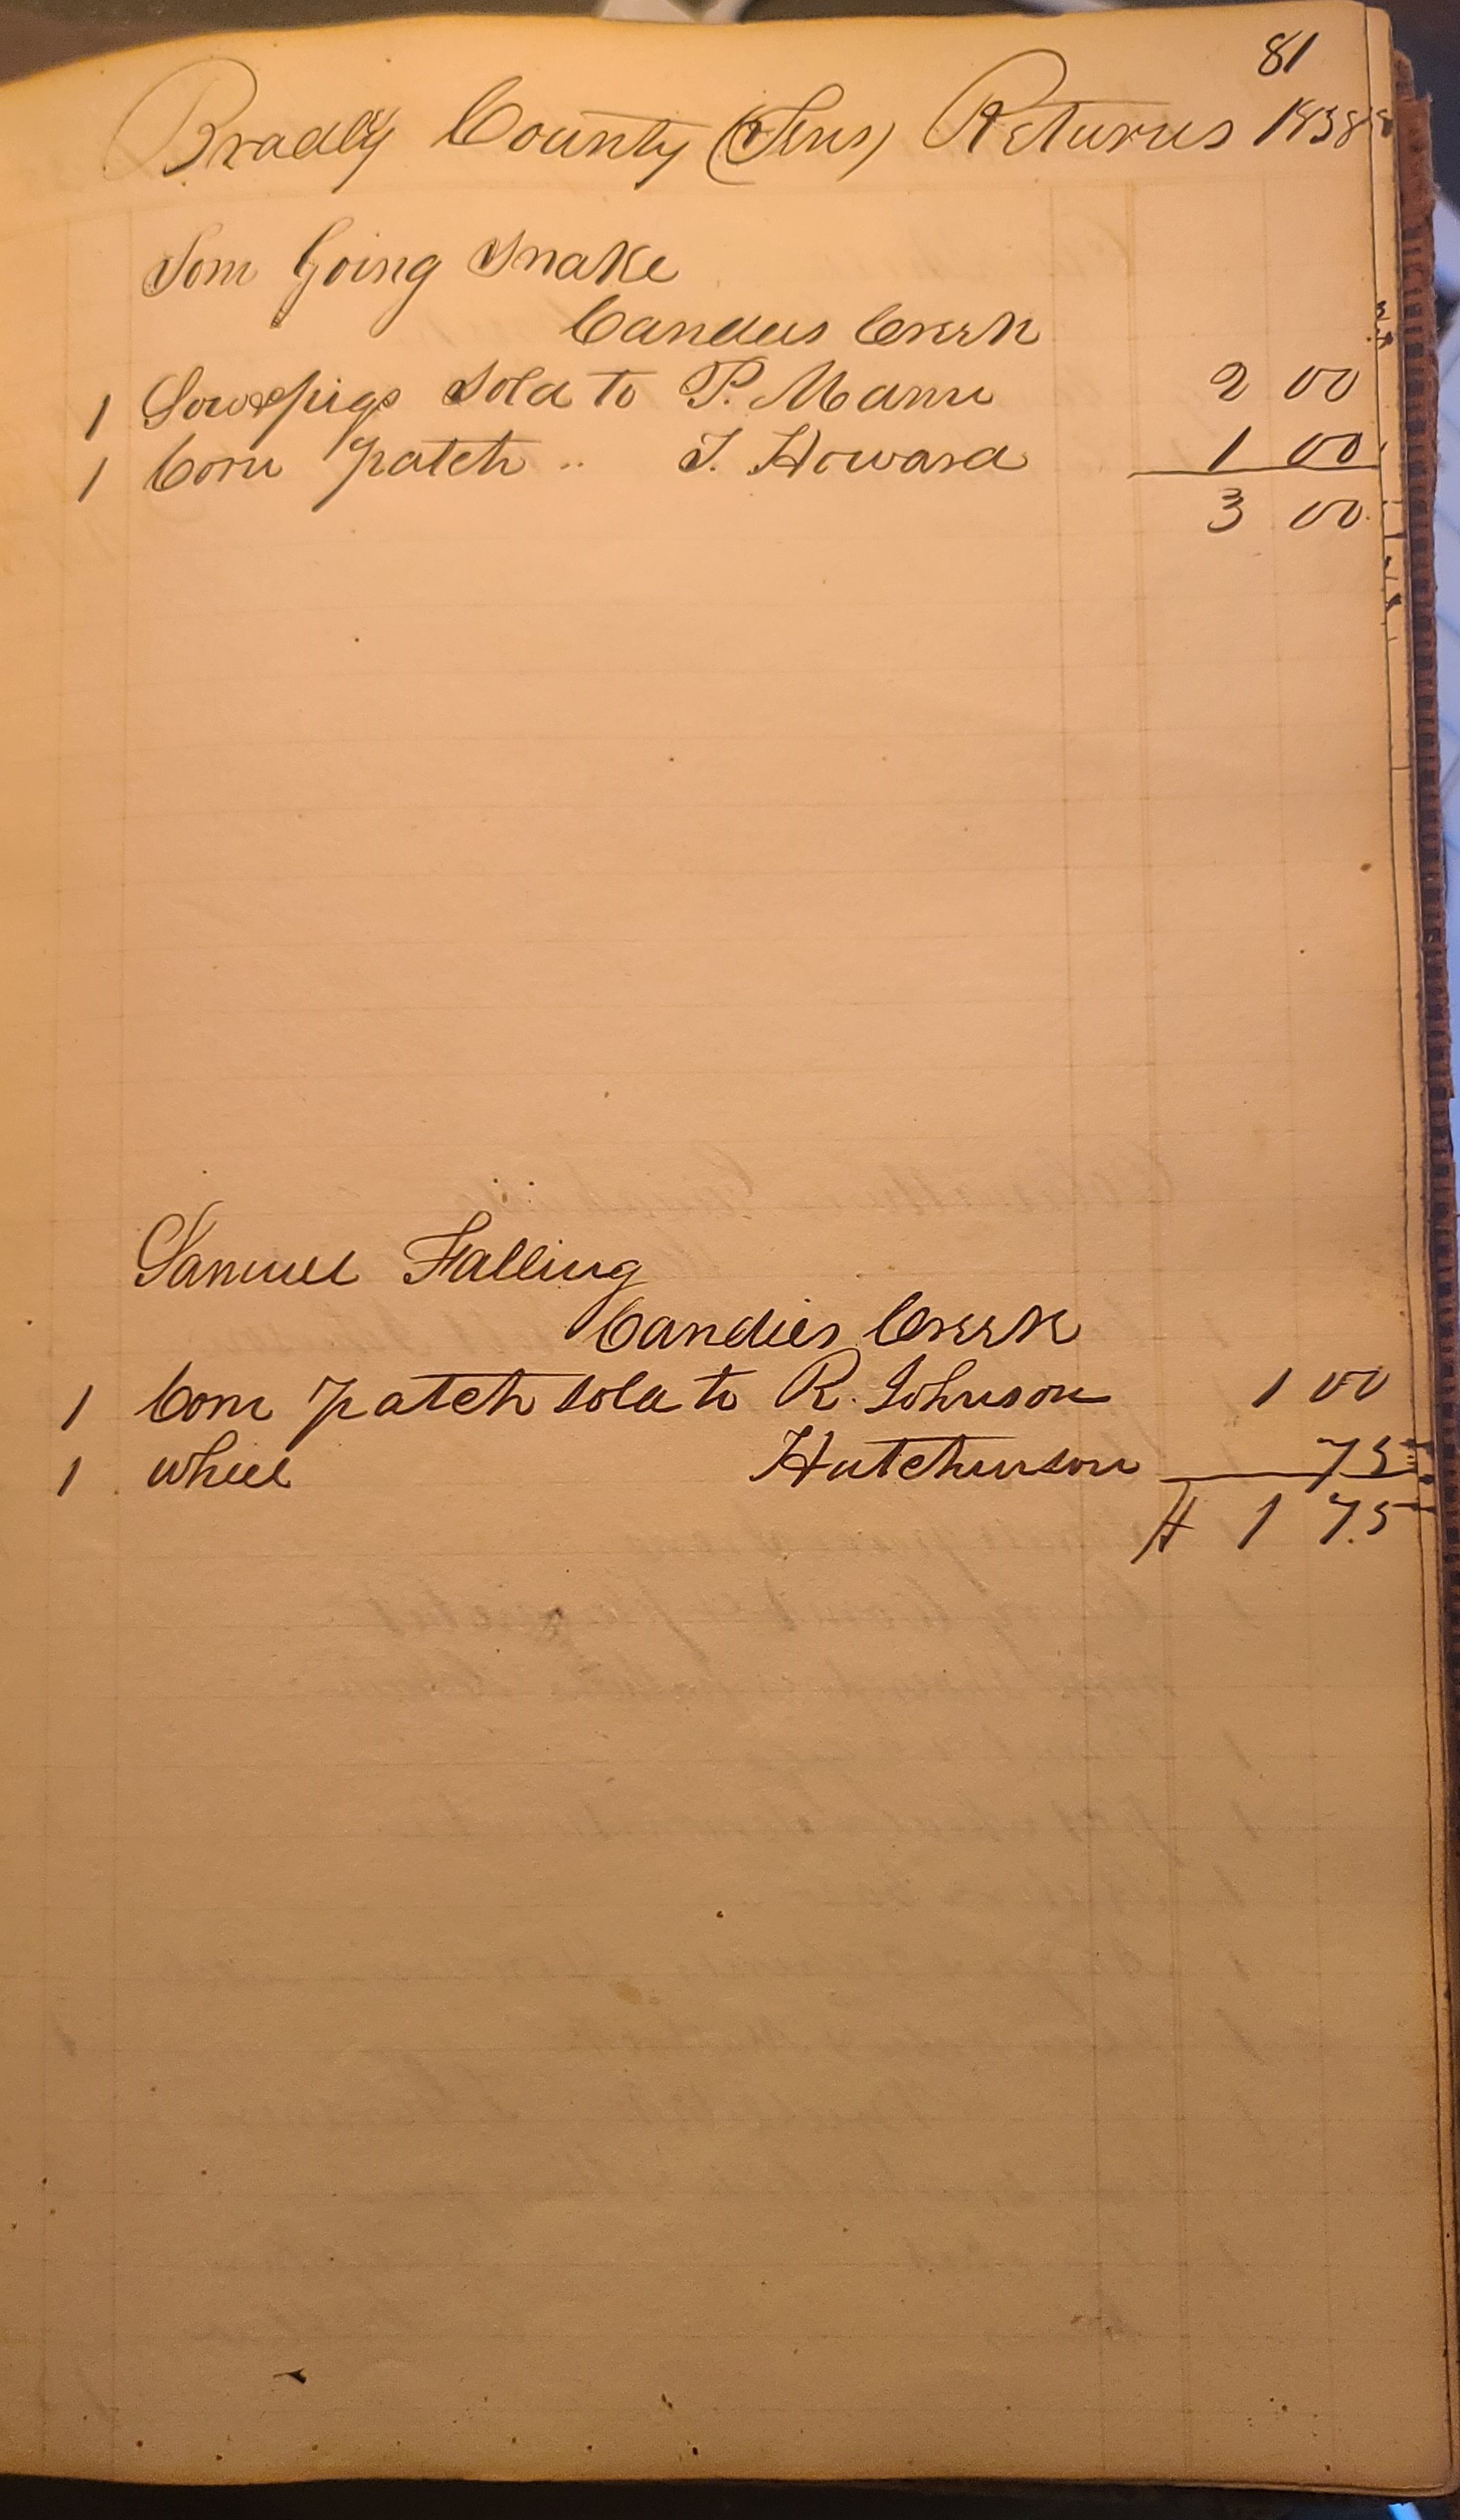 81
Bradly County (Tens) Returns 1838
Tom Going Snake
Candies Creek
1 Sow & pigs Sold to P. Mann 2 00
1 Corn patch " T. Howard 1 00
3 00
Samuel Falling
Candies Creek
1 Corn patch sold to R. Johnson 1 00
1 wheel Hutchinson 75
$ 1 75